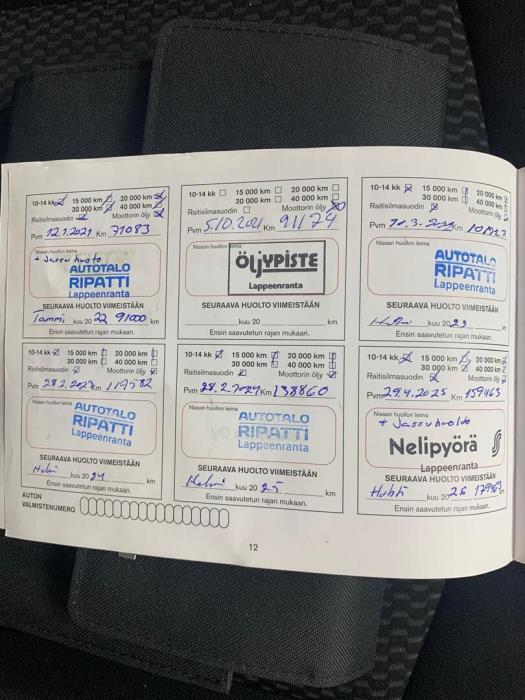 10-14 kk
15 000 km 20 000 km
30 000 km 40 000 km
Raitisilmasuodin Moottorin öljy
Pvm 12.1.2021 Km 71083
Nissan huollon leima
+ Jarru huolto
AUTOTALO
RIPATTI
Lappeenranta
SEURAAVA HUOLTO VIIMEISTÄÄN
Tammi kuu 20 22 91000 km
Ensin saavutetun rajan mukaan.
10-14 kk 15 000 km 20 000 km
30 000 km 40 000 km
Raitisilmasuodin Moottorin öljy
Pvm 5.10.2021 Km 91174
Nissan huollon leima
ÖLJYPISTE
Lappeenranta
SEURAAVA HUOLTO VIIMEISTÄÄN
kuu 20 km
Ensin saavutetun rajan mukaan.
10-14 kk 15 000 km 20 000 km
30 000 km 40 000 km
Raitisilmasuodin Moottorin öljy
Pvm Km
Nissan huollon leima
AUTOTALO
RIPATTI
Lappeenranta
SEURAAVA HUOLTO VIIMEISTÄÄN
kuu 20 23
Ensin saavutetun rajan mukaan.
10-14 kk 15 000 km 20 000 km
30 000 km 40 000 km
Raitisilmasuodin Moottorin öljy
Pvm 28.2.2023 Km
Nissan huollon leima
AUTOTALO
RIPATTI
Lappeenranta
SEURAAVA HUOLTO VIIMEISTÄÄN
Helmi kuu 20 24 km
Ensin saavutetun rajan mukaan.
10-14 kk 15 000 km 20 000 km
30 000 km 40 000 km
Raitisilmasuodin Moottorin öljy
Pvm 28.2.2024 Km 138860
Nissan huollon leima
AUTOTALO
RIPATTI
Lappeenranta
SEURAAVA HUOLTO VIIMEISTÄÄN
Helmi kuu 20 25 km
Ensin saavutetun rajan mukaan.
10-14 kk 15 000 km 20 000 km
30 000 km 40 000 km
Raitisilmasuodin Moottorin öljy
Pvm 29.4.2025 Km 159463
Nissan huollon leima
+ Jarruhuolto
Nelipyörä
Lappeenranta
SEURAAVA HUOLTO VIIMEISTÄÄN
Huhti kuu 20 26
Ensin saavutetun rajan mukaan.
AUTON
VALMISTENUMERO
12